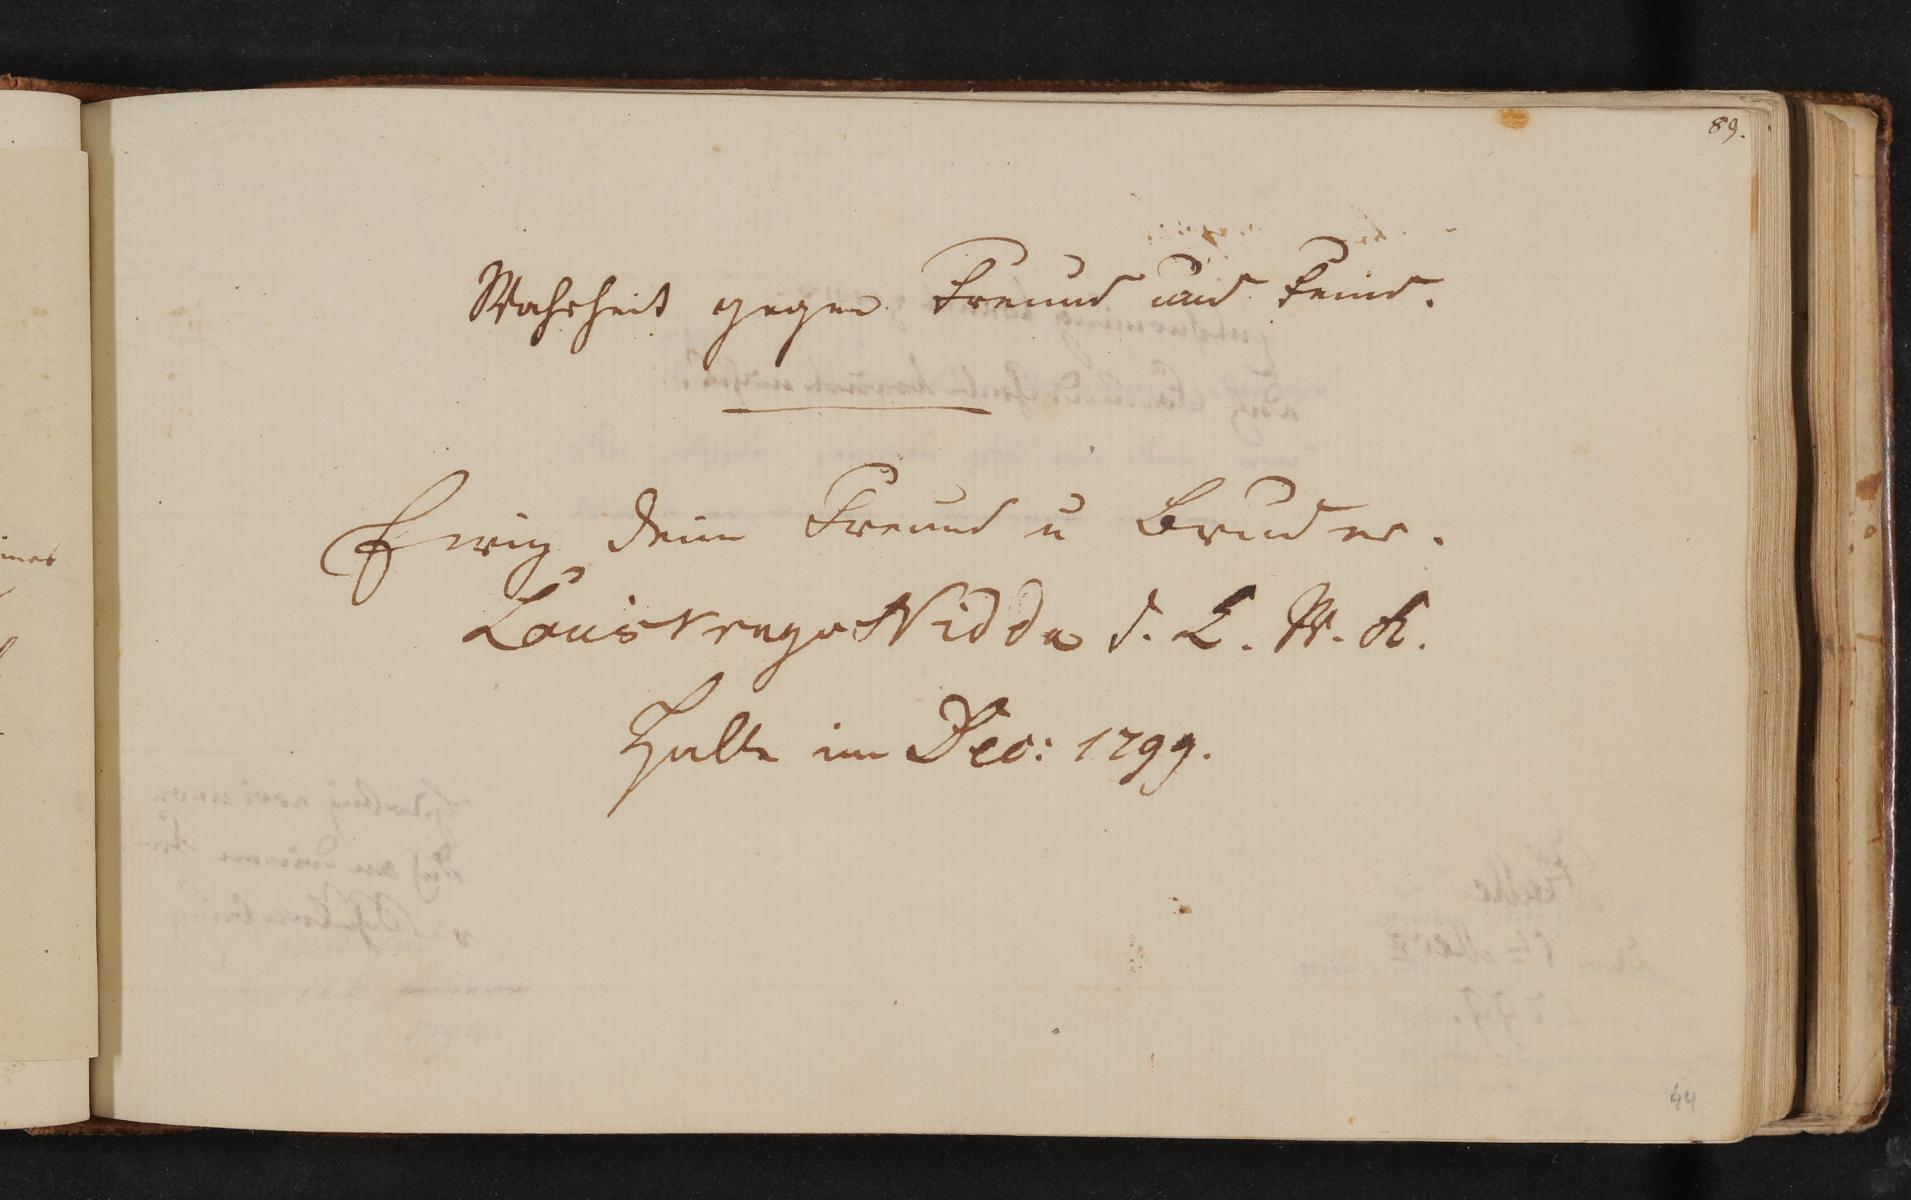 89.
Wahrheit gegen Freund und Feind.
Ewig dein Freund u Bruder.
Louis Nidda d. L. W. K.
Halle im Dec: 1799.
44